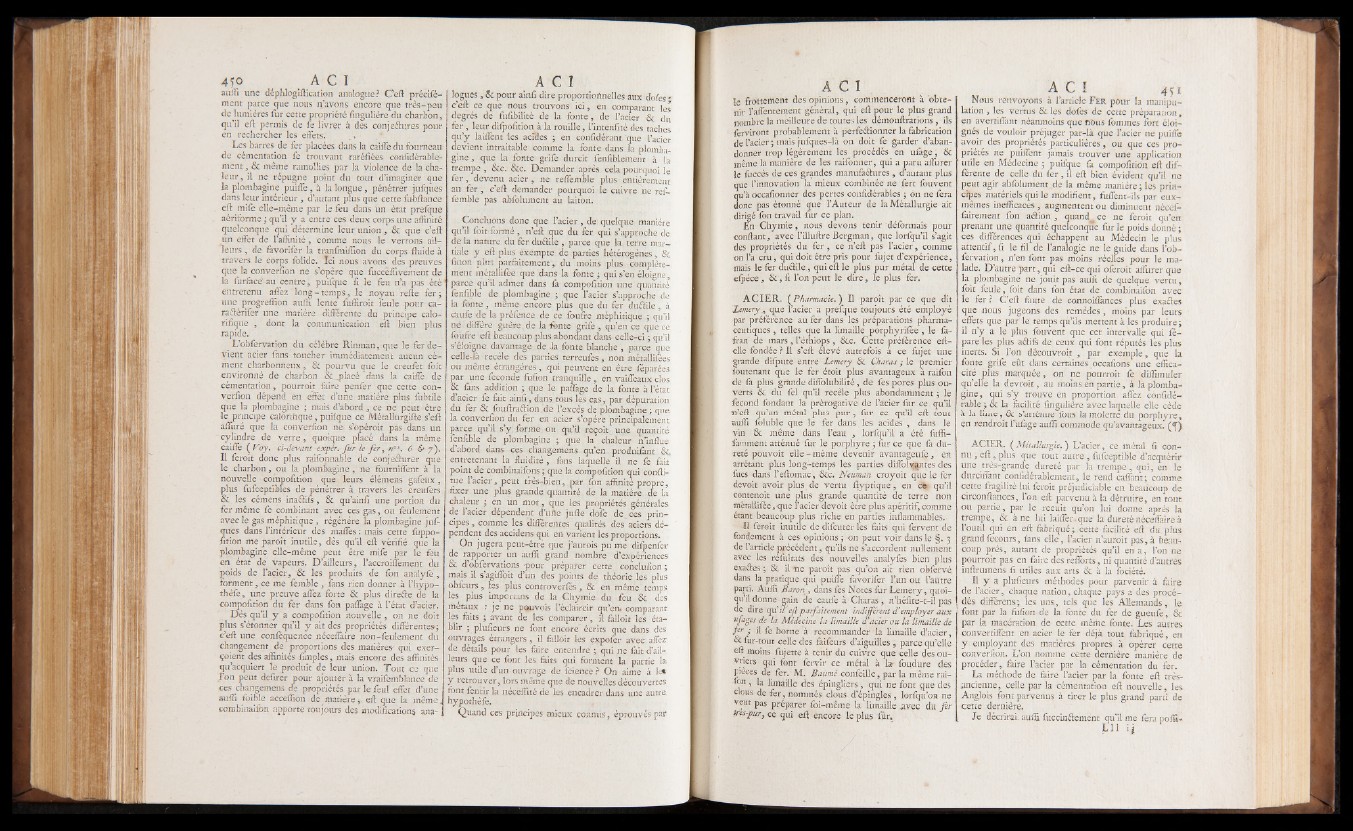 450 A C I
aussi une déphlogistication analogue? C'est précisé-
ment parce que nous n'avons encore que très-peu
de lumières sur cette propriété singulière du charbon,
qu'il est permis de se livrer à des conjectures pour
en rechercher les effets.
Les barres de fer placées dans la caisse du fourneau
de cémentation se trouvant raréfiées considérable-
ment, & même ramollies par la violence de la cha-
leur, il ne répugne point du tout d'imaginer que
la plombagine puisse, à la longue, pénétrer jusques
dans leur intérieur, d'autant plus que cette substance
est mise elle-même par le feu dans un état presque
aériforme; qu'il y a entre ces deux corps une affinité
quelconque qui détermine leur union, & que c'est
un effet de l'affinité, comme nous le verrons ail-
leurs, de favoriser la transmission du corps fluide à
travers le corps solide. Ici nous avons des preuves
que la conversion ne s'opère que successivement de
la surface au centre, puisque si le feu n'a pas été
entretenu assez long-temps, le noyau reste fer;
une progression aussi lente suffiroit seule pour ca-
ractériser une matière différente du principe calo-
rifique, dont la communication est bien plus
rapide.
L'observation du célèbre Rinman, que le fer de-
vient acier sans toucher immédiatement aucun cé-
ment charbonneux, & pourvu que le creuset soit
environné de charbon & placé dans la caisse de
cémentation, pourroit faire penser que cette con-
version dépend en effet d'une matière plus subtile
que la plombagine; mais d'abord, ce ne peut être
le principe calorifique, puisque ce Métallurgiste s'est
assuré que la conversion ne s'opéroit pas dans un
cylindre de verre, quoique placé dans la même
caisse (Voy. ci-devant expér. sur le fer, nos. 6 & 7).
Il seroit donc plus raisonnable de conjecturer que
le charbon, ou la plombagine, ne fournissent à la
nouvelle composition que leurs élémens gaseux,
plus susceptibles de pénétrer à travers les creusets
& les cémens inactifs, & qu'ainsi une portion du
fer même se combinant avec ces gas, ou seulement
avec le gas méphitique, régénère la plombagine jus-
ques dans l'intérieur des masses: mais cette suppo-
sition me paroît inutile, dès qu'il est vérifié que la
plombagine elle-même peut être mise par le feu
en état de vapeurs. D'ailleurs, l'accroissement du
poids de l'acier, & les produits de son analyse,
forment, ce me semble, sans rien donner à l'hypo-
thèse, une preuve assez forte & plus directe de la
composition du fer dans son passage à l'état d'acier.
Dès qu'il y a composition nouvelle, on ne doit
plus s'étonner qu'il y ait des propriétés différentes;
c'est une conséquence nécessaire non-seulement du
changement de proportions des matières qui exer-
çoient des affinités simples, mais encore des affinités
qu'acquiert le produit de leur union. Tout ce que
l'on peut desirer pour ajouter à la vraisemblance de
ces changemens de propriétés par le seul effet d'une
aussi foible accession de matière, est que la même
combinaison apporte toujours des modifications ana-
A C I
logues, & pour ainsi dire proportionnelles aux doses;
c'est ce que nous trouvons ici, en comparant les
degrés de fusibilité de la fonte, de l'acier & du
fer, leur disposition à la rouille, l'intensité des taches
qu'y laissent les acides; en considérant que l'acier
devient intraitable comme la fonte dans la plomba-
gine, que la fonte grise durcit sensiblement à la
trempe, &c. &c. Demander après cela pourquoi le
fer, devenu acier, ne ressemble plus entièrement
au fer, c'est demander pourquoi le cuivre ne res-
semble pas absolument au laiton.
Concluons donc que l'acier, de quelque manière
qu'il soit formé, n'est que du fer qui s'approche de
de la nature du fer ductile, parce que la terre mar-
tiale y est plus exempte de parties hétérogènes, &
sinon plus parfaitement, du moins plus complète-
ment métallisée que dans la fonte; qui s'en éloigne,
parce qu'il admet dans sa composition une quantité
sensible de plombagine; que l'acier s'approche de
la fonte, même encore plus que du fer ductile, à
cause de la présence de ce soufre méphitique; qu'il
ne diffère guère de la fonte grise, qu'en ce que ce
soufre est beaucoup plus abondant dans celle-ci; qu'il
s'éloigne davantage de la fonte blanche, parce que
celle-là recèle des parties terreuses, non métallisées
ou même étrangères, qui peuvent en être séparées
par une seconde fusion tranquille, en vaisseaux clos
& sans addition; que le passage de la fonte à l'état
d'acier se fait ainsi, dans tous les cas, par dépuration
du fer & soustraction de l'excès de plombagine; que
la conversion du fer en acier s'opère principalement
parce qu'il s'y forme ou qu'il reçoit une quantité
sensible de plombagine; que la chaleur n'influe
d'abord dans ces changemens qu'en produisant &
entretenant la fluidité, sans laquelle il ne se fait
point de combinaisons; que la composition qui consti-
tue l'acier, peut très-bien, par son affinité propre,
fixer une plus grande quantité de la matière de la
chaleur; en un mot, que les propriétés générales
de l'acier dépendent d'une juste dose de ces prin-
cipes, comme les différentes qualités des aciers dé-
pendent des accidens qui en varient les proportions.
On jugera peut-être que j'aurois pu me dispenser
de rapporter un aussi grand nombre d'expériences
& d'observations pour préparer cette conclusion;
mais il s'agissoit d'un des points de théorie les plus
obscurs, les plus controversés, & en même temps
les plus importans de la Chymie du feu & des
métaux: je ne pouvois l'éclaircir qu'en comparant
les faits; avant de les comparer, il falloit les éta-
blir; plusieurs ne sont encore écrits que dans des
ouvrages étrangers, il falloit les exposer avec assez
de détails pour les faire entendre; qui ne sait d'ail-
leurs que ce sont les faits qui forment la partie la
plus utile d'un ouvrage de science? On aime à les
y recouvrer, lors même que de nouvelles découvertes
font sentir la nécessité de les encadrer dans une autre
hypothèse.
Quand ces principes mieux connus, éprouvés par
A C I
le frottement des opinions, commenceront à obte-
nir l'assentiment général, qui est pour le plus grand
nombre la meilleure de toutes les démonstrations, ils
serviront probablement à perfectionner la fabrication
de l'acier; mais jusques-là on doit se garder d'aban-
donner trop légèrement les procédés en usage, &
même la manière de les raisonner, qui a paru assurer
le succès de ces grandes manufactures, d'autant plus
que l'innovation la mieux combinée ne sert souvent
qu'à occasionner des pertes considérables; on ne sera
donc pas étonné que l'Auteur de la Métallurgie ait
dirigé son travail sur ce plan.
En Chymie, nous devons tenir désormais pour
constant, avec l'illustre Bergman, que lorsqu'il s'agit
des propriétés du fer, ce n'est pas l'acier, comme
on l'a cru, qui doit être pris pour sujet d'expérience,
mais le fer ductile, qui est le plus pur métal de cette
espèce, &, si l'on peut le dire, le plus fer.
ACIER. (Pharmacie.) Il paroît par ce que dit
Lemery, que l'acier a presque toujours été employé
par préférence au fer dans les préparations pharma-
ceutiques, telles que la limaille porphyrisée, le sa-
fran de mars, l'éthiops, &c. Cette préférence est-
elle fondée? Il s'est élevé autrefois à ce sujet une
grande dispute entre Lemery & Charas; le premier
soutenant que le fer étoit plus avantageux à raison
de sa plus grande dissolubilité, de ses pores plus ou-
verts & du sel qu'il recèle plus abondamment; le
second fondant la prérogative de l'acier sur ce qu'il
n'est qu'un métal plus pur, sur ce qu'il est tout
aussi soluble que le fer dans les acides, dans le
vin & même dans l'eau, lorsqu'il a été suffi-
samment atténué sur le porphyre; sur ce que sa du-
reté pouvoit elle-même devenir avantageuse, en
arrêtant plus long-temps les parties dissolvantes des
sucs dans l'estomac, &c. Neuman croyoit que le fer
devoit avoir plus de vertu styptique, en ce qu'il
contenoit une plus grande quantité de terre non
métallisée, que l'acier devoit être plus apéritif, comme
étant beaucoup plus riche en parties inflammables.
Il seroit inutile de discuter les faits qui servent de
fondement à ces opinions; on peut voir dans le §. 3
de l'article précédent, qu'ils ne s'accordent nullement
avec les résultats des nouvelles analyses bien plus
exactes; & il ne paroît pas qu'on ait rien observé
dans la pratique qui puisse favoriser l'un ou l'autre
parti. Aussi Baron, dans ses Notes sur Lemery, quoi-
qu'il donne gain de cause à Charas, n'hésite-t-il pas
de dire qu'il est parfaitement indifférent d'employer aux
usages de la Médecine la limaille d'acier ou la limaille de
fer; il se borne à recommander la limaille d'acier,
& sur-tout celle des faiseurs d'aiguilles, parce qu'elle
est moins sujette à tenir du cuivre que celle des ou-
vriers qui font servir ce métal à la soudure des
pièces de fer. M. Baumé conseille, par la même rai-
son, la limaille des épingliers, qui ne font que des
clous de fer, nommés clous d'épingles, lorsqu'on ne
veut pas préparer soi-même la limaille avec du fer
très-pur, ce qui est encore le plus sûr.
A C I 451
Nous renvoyons à l'article FER pour la manipu-
lation, les vertus & les doses de cette préparation,
en avertissant néanmoins que nous sommes fort éloi-
gnés de vouloir préjuger par-là que l'acier ne puisse
avoir des propriétés particulières, ou que ces pro-
priétés ne puissent jamais trouver une application
utile en Médecine; puisque sa composition est dif-
férente de celle du fer, il est bien évident qu'il ne
peut agir absolument de la même manière; les prin-
cipes matériels qui le modifient, fussent-ils par eux-
mêmes inefficaces, augmentent ou diminuent néces-
sairement son action, quand ce ne seroit qu'en
prenant une quantité quelconque sur le poids donné;
ces différences qui échappent au Médecin le plus
attentif, si le fil de l'analogie ne le guide dans l'ob-
servation, n'en sont pas moins réelles pour le ma-
lade. D'autre part, qui est-ce qui oseroit assurer que
la plombagine ne jouit pas aussi de quelque vertu,
soit seule, soit dans son état de combinaison avec
le fer? C'est faute de connoissances plus exactes
que nous jugeons des remèdes, moins par leurs
effets que par le temps qu'ils mettent à les produire;
il n'y a le plus souvent que cet intervalle qui sé-
pare les plus actifs de ceux qui sont réputés les plus
inerts. Si l'on découvroit, par exemple, que la
fonte grise eût dans certaines occasions une effica-
cité plus marquée, on ne pourroit se dissimuler
qu'elle la devroit, au moins en partie, à la plomba-
gine, qui s'y trouve en proportion assez considé-
rable; & la facilité singulière avec laquelle elle cède
à la lime, & s'atténue sous la molette du porphyre,
en rendroit l'usage aussi commode qu'avantageux. (¶)
ACIER. (Métallurgie.) L'acier, ce métal si con-
nu, est, plus que tout autre, susceptible d'acquérir
une très-grande dureté par la trempe, qui, en le
durcissant considérablement, le rend cassant; comme
cette fragilité lui seroit préjudiciable en beaucoup de
circonstances, l'on est parvenu à la détruire, en tout
ou partie, par le recuit qu'on lui donne après la
trempe, & à ne lui laisser que la dureté nécessaire à
l'outil qui en est fabriqué; cette facilité est du plus
grand secours, sans elle, l'acier n'auroit pas, à beau-
coup près, autant de propriétés qu'il en a, l'on ne
pourroit pas en faire des ressorts, ni quantité d'autres
instrumens si utiles aux arts & à la société.
Il y a plusieurs méthodes pour parvenir à faire
de l'acier, chaque nation, chaque pays a des procé-
dés différens; les uns, tels que les Allemands, le
font par la fusion de la fonte du fer de gueuse, &
par la macération de cette même fonte. Les autres
convertissent en acier le fer déja tout fabriqué, en
y employant des matières propres à opérer cette
conversion. L'on nomme cette dernière manière de
procéder, faire l'acier par la cémentation du fer.
La méthode de faire l'acier par la fonte est très-
ancienne, celle par la cémentation est nouvelle, les
Anglois sont parvenus à tirer le plus grand parti de
cette dernière.
Je décrirai aussi succinctement qu'il me sera possi-
L l l ij